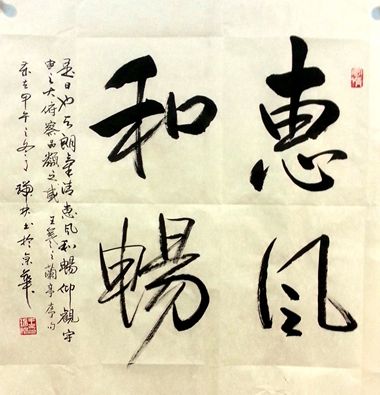 惠风
和暢
是日也天朗氣清惠风和暢仰觀宇
宙之大俯察品類之盛 王羲之蘭亭序句
歲在甲午之冬 书於京華